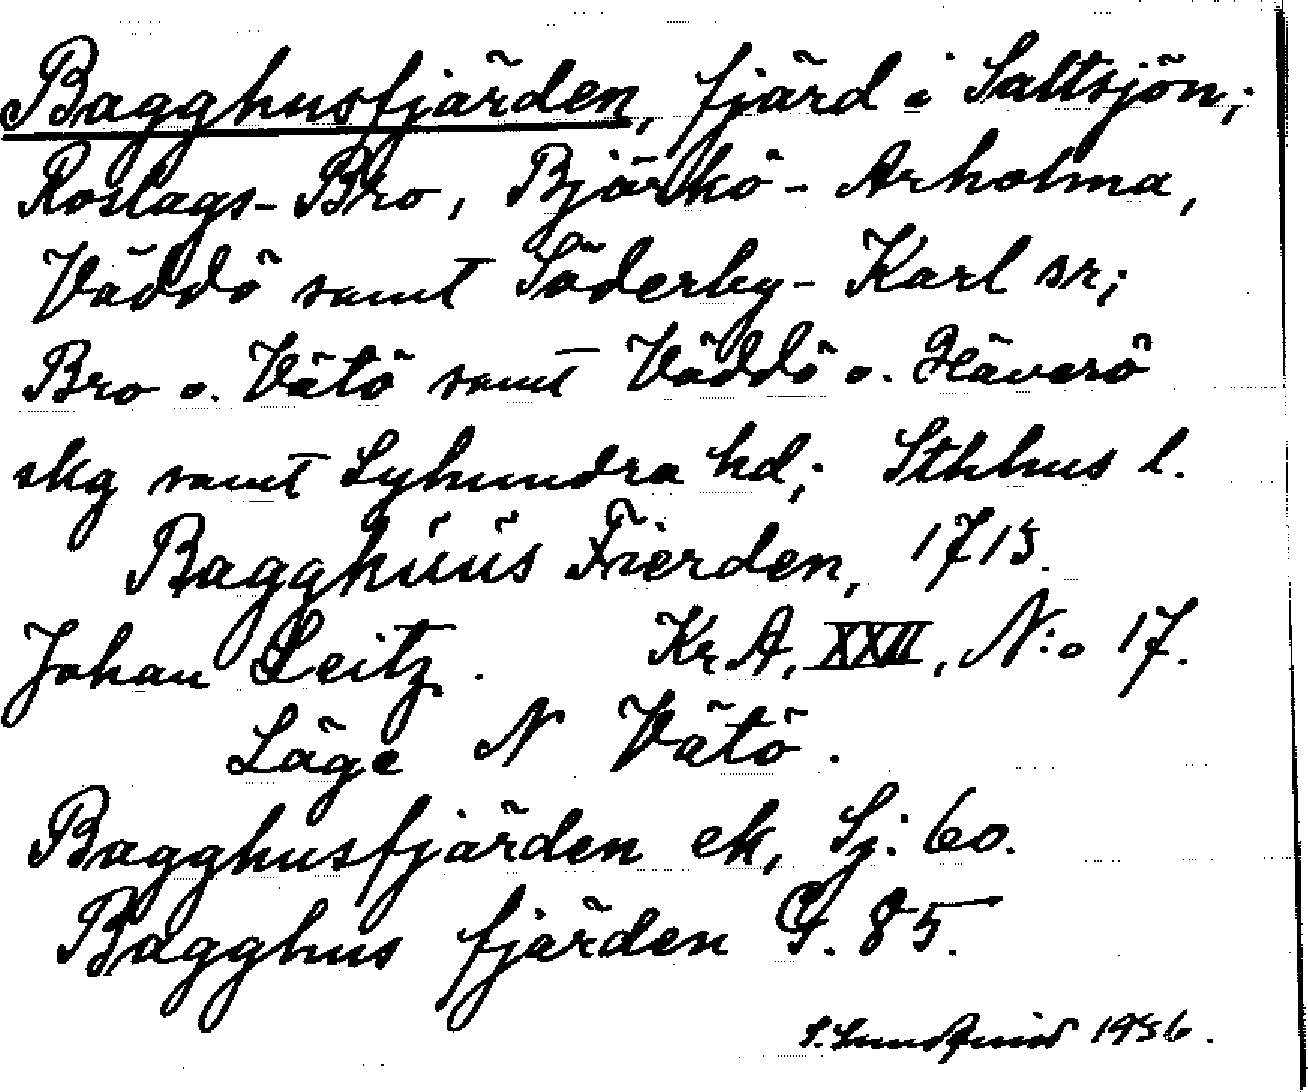 Bagghusfjärden, fjärd i Saltsjön;
Roslags-Bro, Björkö-Arholma,
Väddö samt Söderby-Karl sr;
Bro o. Vätö samt Väddö o. Häverö
skg samt Lyhundra hd; Sthlms l.
Bagghüüs Fierden, 1715.
Johan Leitz. Kr A, XXII, N:o 17.
Läge N Vätö.
Bagghusfjärden ek, Sj: 60.
Bagghus fjärden G. 85.
S. Lundqvist 1936.